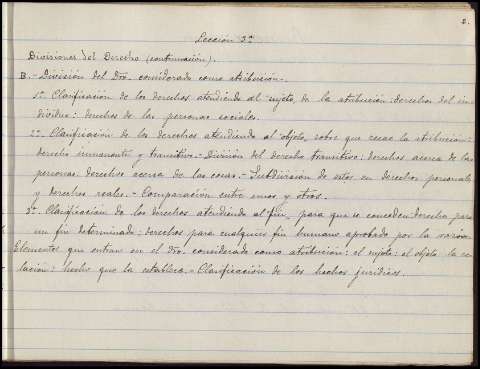 2.
Lección 3ª
Divisiones del Derecho (continuación).
B.- División del Dro. considerado como atribución.
1º Clasificación de los derechos atendiendo al sujeto de la atribución: derechos del in-
dividuo: derechos de las personas sociales.
2º Clasificación de los derechos atendiendo al objeto sobre que recae la atribución:
derecho inmanente y transitivo.- División del derecho transitivo: derechos acerca de las
personas: derechos acerca de las cosas.- Subdivisión de estos en derechos personales
y derechos reales.- Comparación entre unos y otros.
3º Clasificación de los derechos atendiendo al fin, para que se conceden: derecho para
un fin determinado: derechos para cualquier fin humano aprobado por la razón.
Elementos que entran en el Dro. considerado como atribución: el sujeto: el objeto: la re-
lación: hecho que la establece.- Clasificación de los hechos jurídicos.